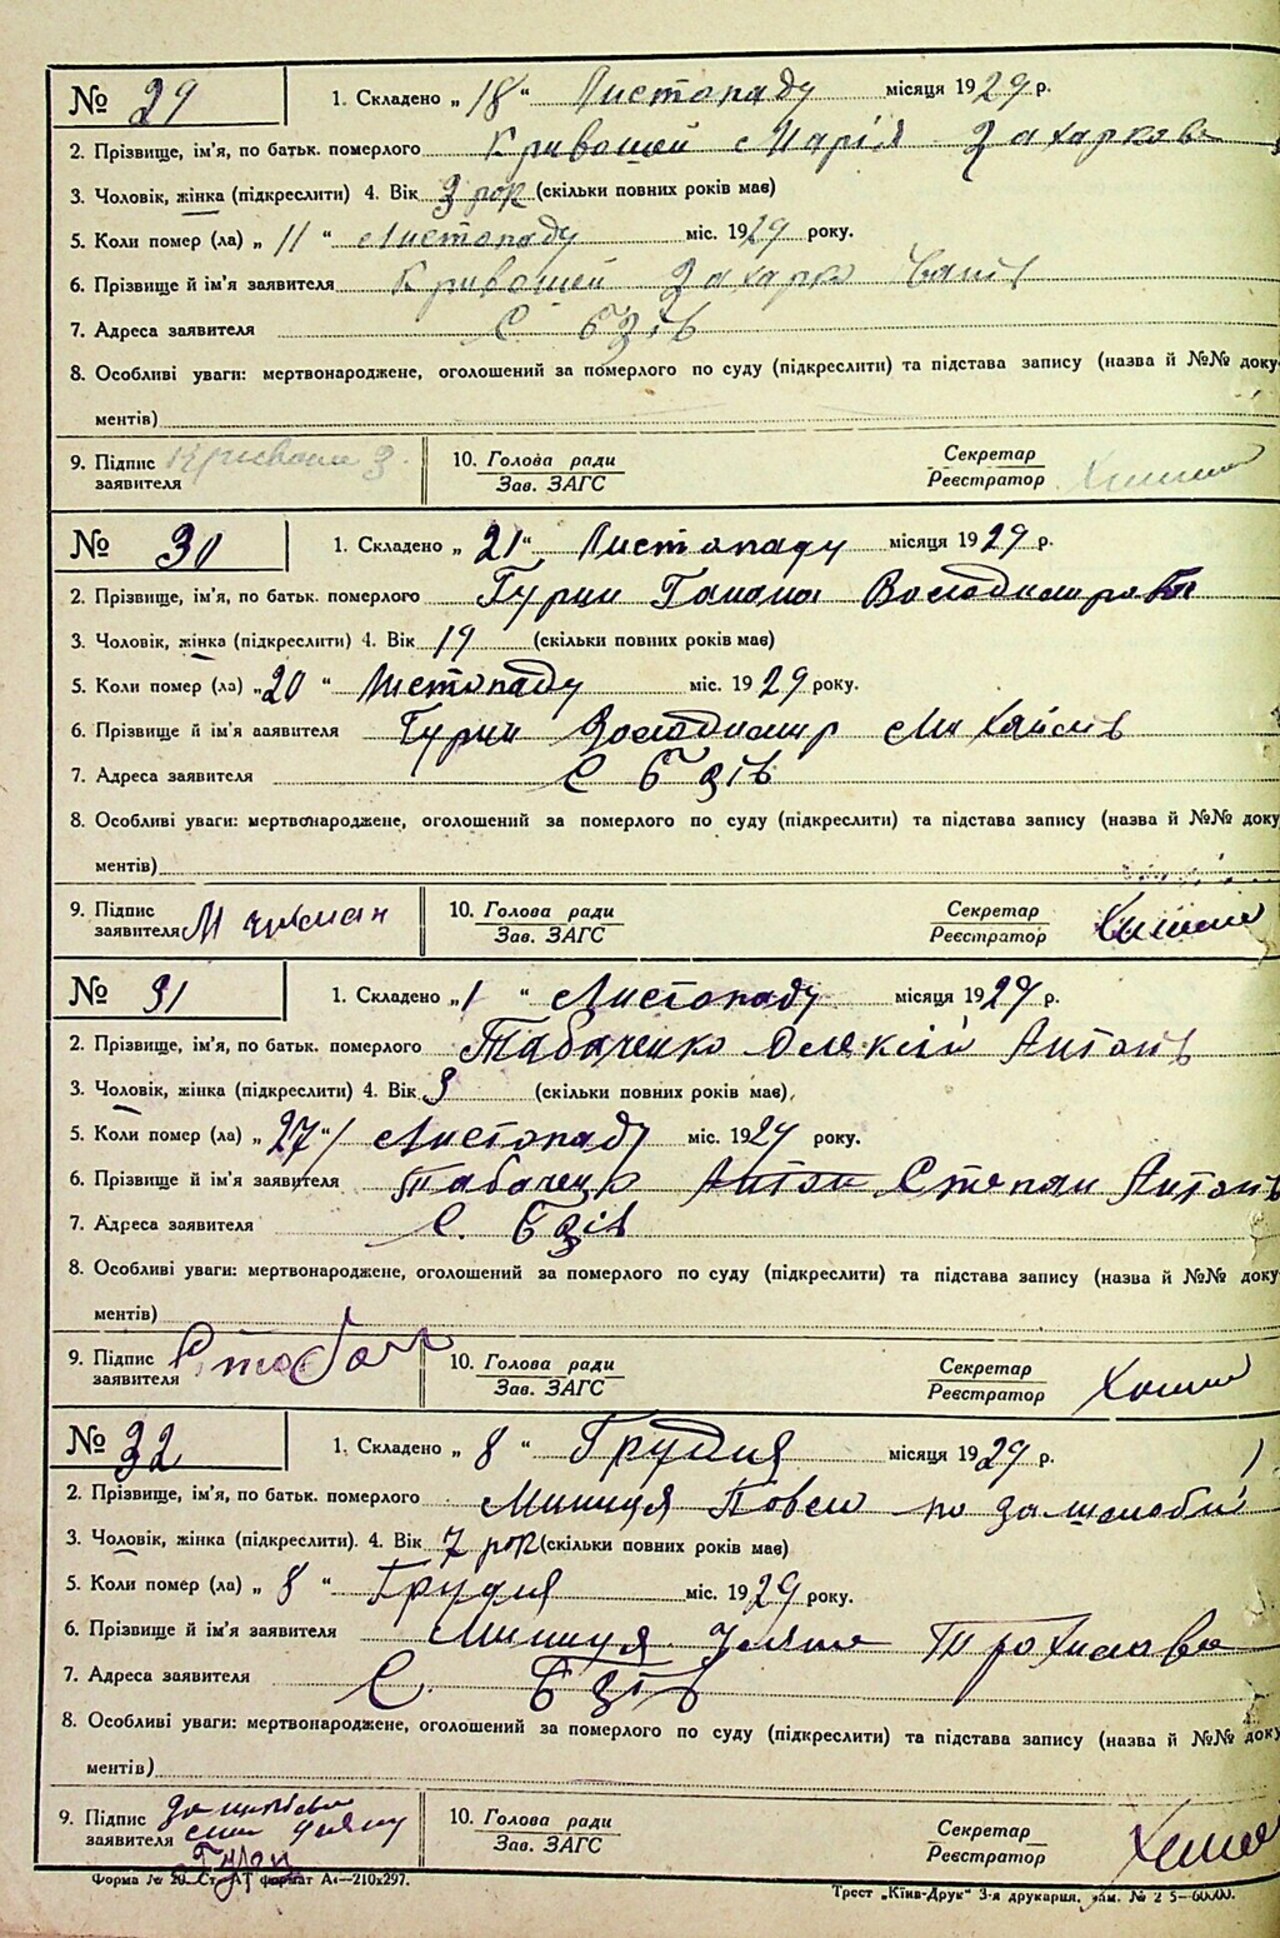 № 29 1. Складено „ 18 " Листопаду місяця 1929 р.
2. Прізвище, ім'я, по батьк. померлого Кривошей Марія Захаркова
3. Чоловік, жінка (підкреслити) 4. Вік 3 рок (скільки повних років має)
5. Коли помер (ла) „ 11 " Листопаду міс. 1929 року.
6. Прізвище й ім'я заявителя Кривошей Захарко Іванів
7. Адреса заявителя С Бзів
8. Особливі уваги: мертвонароджене, оголошений за померлого по суду (підкреслити) та підстава запису (назва й №№ доку-
ментів)
9. Підпис заявителя Кривоши З. 10. Голова ради Секретар
Зав. ЗАГС Реєстратор
№ 30 1. Складено „ 21 " Листопаду місяця 1929 р.
2. Прізвище, ім'я, по батьк. померлого Гурин Ганна Володимирова
3. Чоловік, жінка (підкреслити) 4. Вік 19 (скільки повних років має)
5. Коли помер (ла) „ 20 " Листопаду міс. 1929 року.
6. Прізвище й ім'я заявителя Гурин Володимир Михайлів
7. Адреса заявителя С Бзів
8. Особливі уваги: мертвонароджене, оголошений за померлого по суду (підкреслити) та підстава запису (назва й №№ доку
ментів)
9. Підпис заявителя 10. Голова ради Секретар
Зав. ЗАГС Реєстратор
№ 31 1. Складено „ 1 " Листопаду місяця 1929 р.
2. Прізвище, ім'я, по батьк. померлого Табаченко Олексій Антонів
3. Чоловік, жінка (підкреслити) 4. Вік 3 (скільки повних років має)
5. Коли помер (ла) „ 27 " Листопаду міс. 1929 року.
6. Прізвище й ім'я заявителя Табаченко Антон Степан Антонів
7. Адреса заявителя С. Бзів
8. Особливі уваги: мертвонароджене, оголошений за померлого по суду (підкреслити) та підстава запису (назва й №№ доку
ментів)
9. Підпис заявителя 10. Голова ради Секретар
Зав. ЗАГС Реєстратор
№ 32 1. Складено „ 8 " Грудня місяця 1929 р.
2. Прізвище, ім'я, по батьк. померлого Миниця Повел по
3. Чоловік, жінка (підкреслити). 4. Вік 7 рок (скільки повних років має)
5. Коли помер (ла) „ 8 " Грудня міс. 1929 року.
6. Прізвище й ім'я заявителя Миниця Уляна Трохимова
7. Адреса заявителя С. Бзів
8. Особливі уваги: мертвонароджене, оголошений за померлого по суду (підкреслити) та підстава запису (назва й №№ доку
ментів)
9. Підпис заявителя 10. Голова ради Секретар
Зав. ЗАГС Реєстратор
Форма № 20. Ст. АТ формат А4—210х297.
Трест „Київ-Друк" 3-я друкарня,